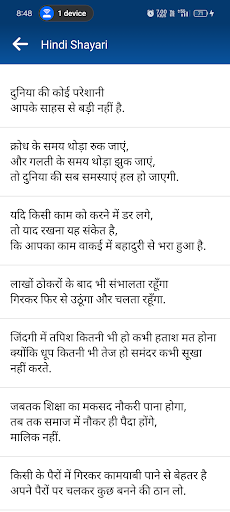 8:48
1 device
Hindi Shayari
दुनिया की कोई परेशानी
आपके साहस से बड़ी नहीं है.
क्रोध के समय थोड़ा रुक जाएं,
और गलती के समय थोड़ा झुक जाएं,
तो दुनिया की सब समस्याएं हल हो जाएगी.
यदि किसी काम को करने में डर लगे,
तो याद रखना यह संकेत है,
कि आपका काम वाकई में बहादुरी से भरा हुआ है.
लाखों ठोकरों के बाद भी संभालता रहूँगा
गिरकर फिर से उठूंगा और चलता रहूँगा.
जिंदगी में तपिश कितनी भी हो कभी हताश मत होना
क्योंकि धूप कितनी भी तेज हो समंदर कभी सूखा
नहीं करते.
जबतक शिक्षा का मकसद नौकरी पाना होगा,
तब तक समाज में नौकर ही पैदा होंगे,
मालिक नहीं.
किसी के पैरों में गिरकर कामयाबी पाने से बेहतर है
अपने पैरों पर चलकर कुछ बनने की ठान लो.